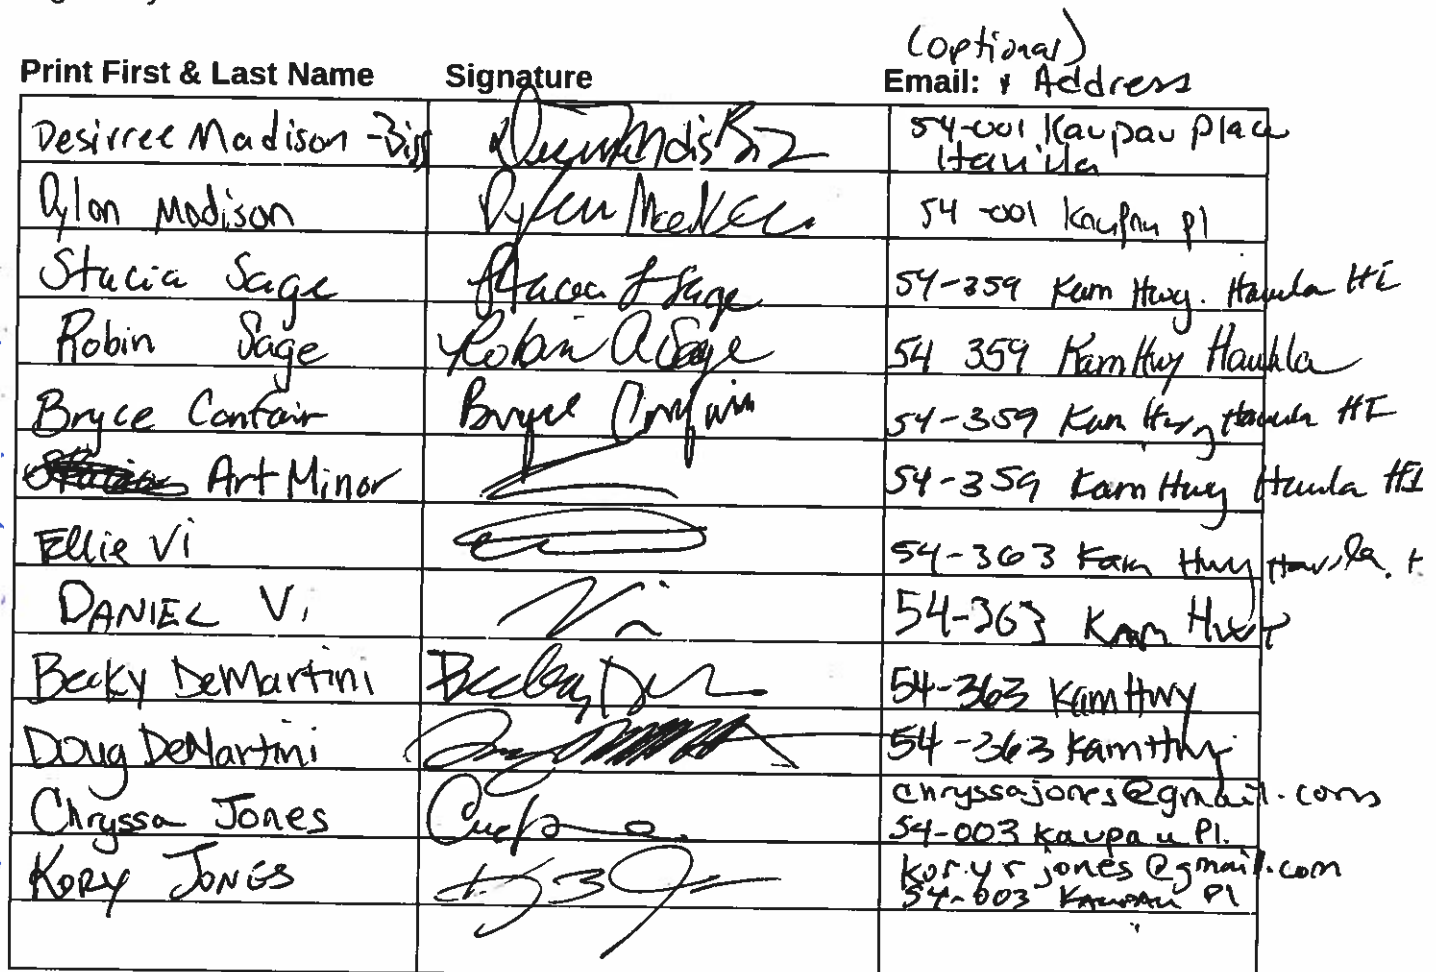 (optional)
Print First & Last Name Signature Email: & Address
Desirree Madison-Biggs 54-001 Kaupau Place
Hau'ula
Dylan Madison 54-001 Kaupau pl
Stacia Sage Stacia L Sage 54-359 Kam Hwy. Hauula HI
Robin Sage Robin A Sage 54 359 Kam Hwy Hauula
Bryce Confair Bryce Confair 54-359 Kam Hwy Hauula HI
Art Minor 54-359 Kam Hwy Hauula HI
Ellie Vi 54-363 Kam Hwy Hau'ula. H
DANIEL Vi Vi 54-363 Kam Hwy
Becky DeMartini Becky 54-363 Kam Hwy
Doug DeMartini 54-363 Kam Hwy
Chryssa Jones chryssajones@gmail.com
54-003 Kaupau Pl.
KORY JONES koryrjones@gmail.com
54-003 KAUPAU Pl